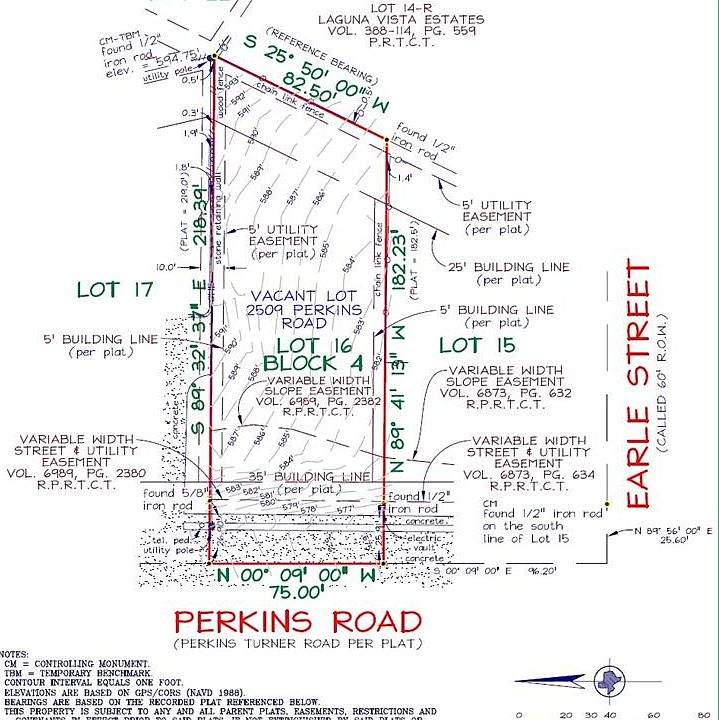 LOT 14-R
LAGUNA VISTA ESTATES
VOL. 388-114, PG. 559
P.R.T.C.T.
CM-TBM
found 1/2"
iron rod
elev. = 594.75'
utility pole
0.5'
(REFERENCE BEARING)
S 25° 50' 00" W
82.50'
chain link fence
wood fence
593'
592'
591'
590'
0.3'
1.9'
1.8'
found 1/2"
iron rod
1.4'
589'
588'
587'
586'
585'
584'
583'
582'
5' UTILITY
EASEMENT
(per plat)
25' BUILDING LINE
(per plat)
(PLAT = 219.0')
218.39'
S 89° 32' 37" E
stone retaining wall
5' UTILITY
EASEMENT
(per plat)
10.0'
chain link fence
182.23'
(PLAT = 182.5')
N 89° 41' 13" W
LOT 17
VACANT LOT
2509 PERKINS
ROAD
LOT 16
BLOCK 4
5' BUILDING LINE
(per plat)
LOT 15
5' BUILDING LINE
(per plat)
591'
590'
589'
588'
587'
586'
585'
584'
VARIABLE WIDTH
SLOPE EASEMENT
VOL. 6989, PG. 2382
R.P.R.T.C.T.
VARIABLE WIDTH
SLOPE EASEMENT
VOL. 6873, PG. 632
R.P.R.T.C.T.
EARLE STREET
(CALLED 60' R.O.W.)
concrete
VARIABLE WIDTH
STREET & UTILITY
EASEMENT
VOL. 6989, PG. 2380
R.P.R.T.C.T.
VARIABLE WIDTH
STREET & UTILITY
EASEMENT
VOL. 6873, PG. 634
R.P.R.T.C.T.
35' BUILDING LINE
(per plat)
found 5/8"
iron rod
583'
582'
581'
580'
579'
578'
577'
found 1/2"
iron rod
concrete
CM
found 1/2" iron rod
on the south
line of Lot 15
tel. ped.
utility pole
electric
vault
concrete
N 89° 56' 00" E
25.60'
S 00° 09' 00" E 96.20'
N 00° 09' 00" W
75.00'
PERKINS ROAD
(PERKINS TURNER ROAD PER PLAT)
NOTES:
CM = CONTROLLING MONUMENT.
TBM = TEMPORARY BENCHMARK.
CONTOUR INTERVAL EQUALS ONE FOOT.
ELEVATIONS ARE BASED ON GPS/CORS (NAVD 1988).
BEARINGS ARE BASED ON THE RECORDED PLAT REFERENCED BELOW.
THIS PROPERTY IS SUBJECT TO ANY AND ALL PARENT PLATS, EASEMENTS, RESTRICTIONS AND
0 20 30 40 80